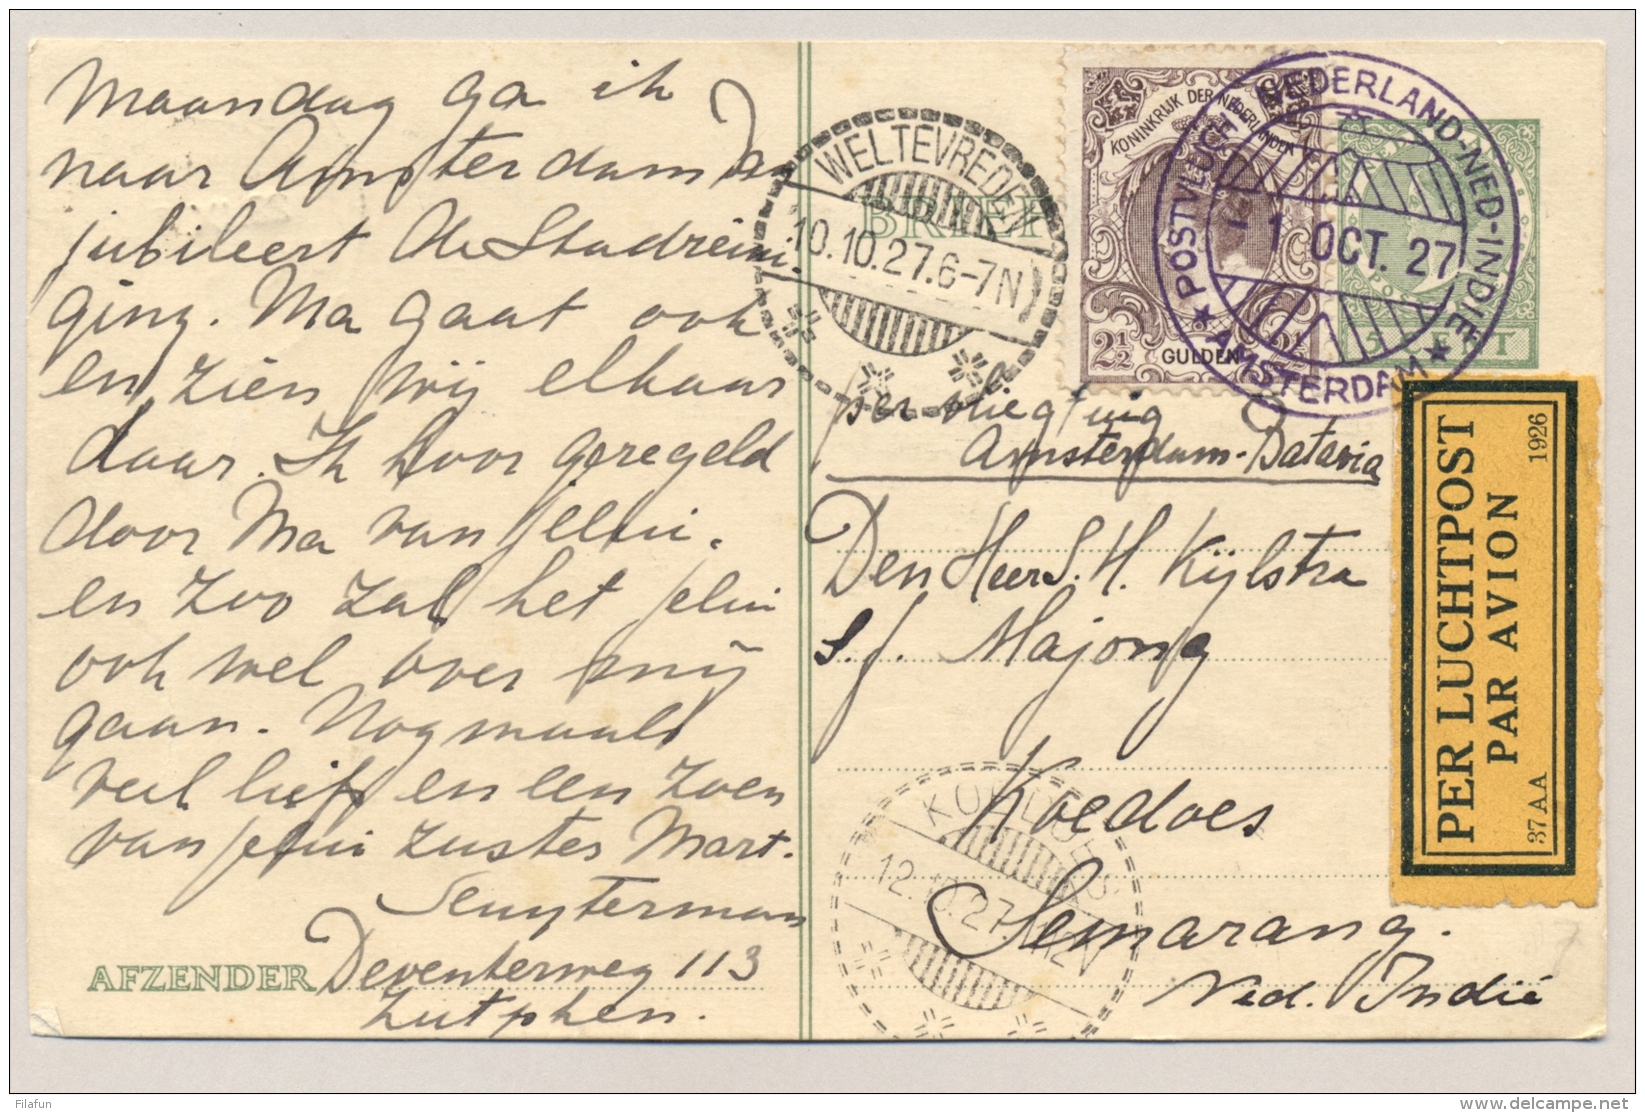 Maandag ga ik
naar Amsterdam Dan
jubileert de Stadreini-
ging. Ma gaat ook
en zien wij elkaar
daar. Ik hoor geregeld
door Ma van jelui.
en zoo zal het jelui
ook wel over mij
gaan. Nogmaals
veel liefs en een zoen
van jelui zuster Mart.
Sluyterman
AFZENDER Deventerweg 113
Zutphen.
WELTEVREDEN
10.10.27.6-7N
BRIEF
KONINKRIJK DER NEDERLANDEN
2½ GULDEN 2½
POSTVLUCHT NEDERLAND-NED-INDIË
1 OCT. 27
★ AMSTERDAM ★
per vliegtuig
Amsterdam-Batavia
Den Heer S. H. Kijlstra
S. f. Majong
Koedoes
Semarang.
Ned. Indië
12.10.27
PER LUCHTPOST
PAR AVION
37 AA 1926
Filafun
www.delcampe.net